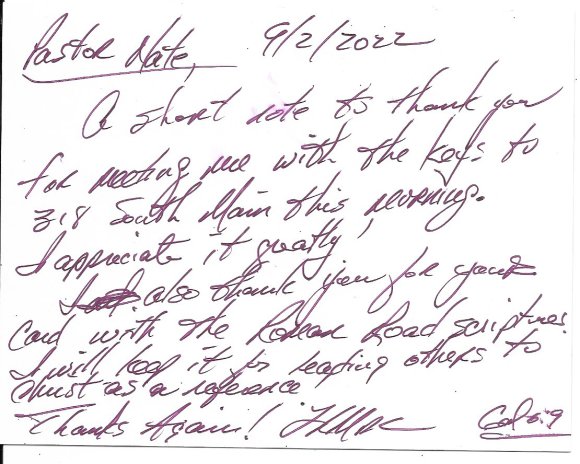 Pastor Nate, 9/2/2022
A short note to thank you
for meeting me with the keys to
318 South Main this morning.
I appreciate it greatly!
I also thank you for your
card with the Roman Road scriptures.
I will keep it for leading others to
Christ as a reference
Thanks Again! Gal 6:9